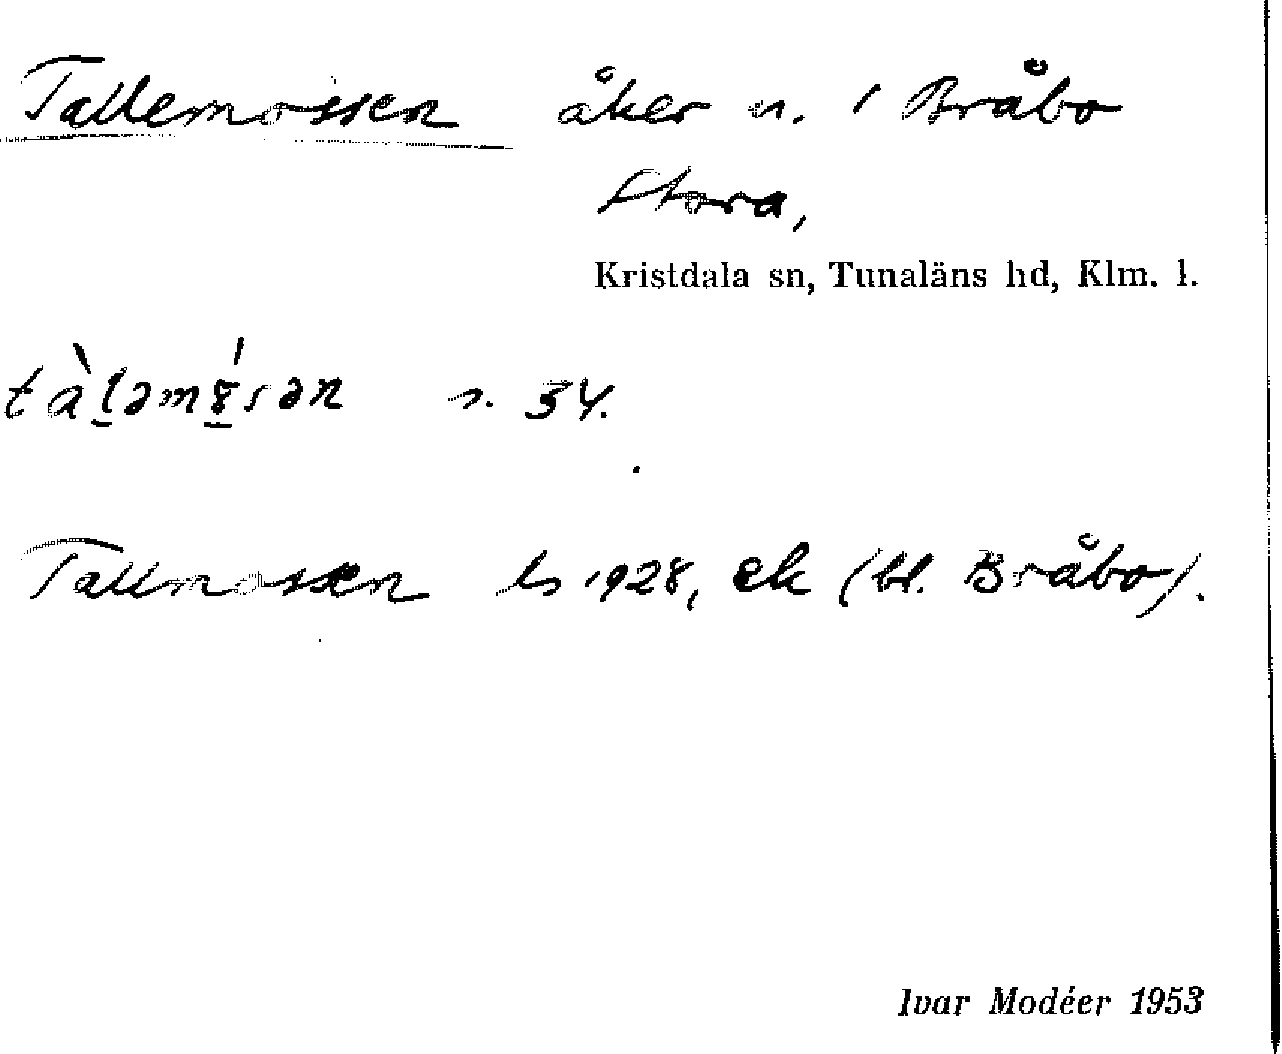 Tallemossen åker n. i Bråbo
Stora,
Kristdala sn, Tunaläns hd, Klm. l.
tàlǝmɤ́sǝn s. 34.
Tallmossen ls 1928, ek (bl. Bråbo).
Ivar Modéer 1953